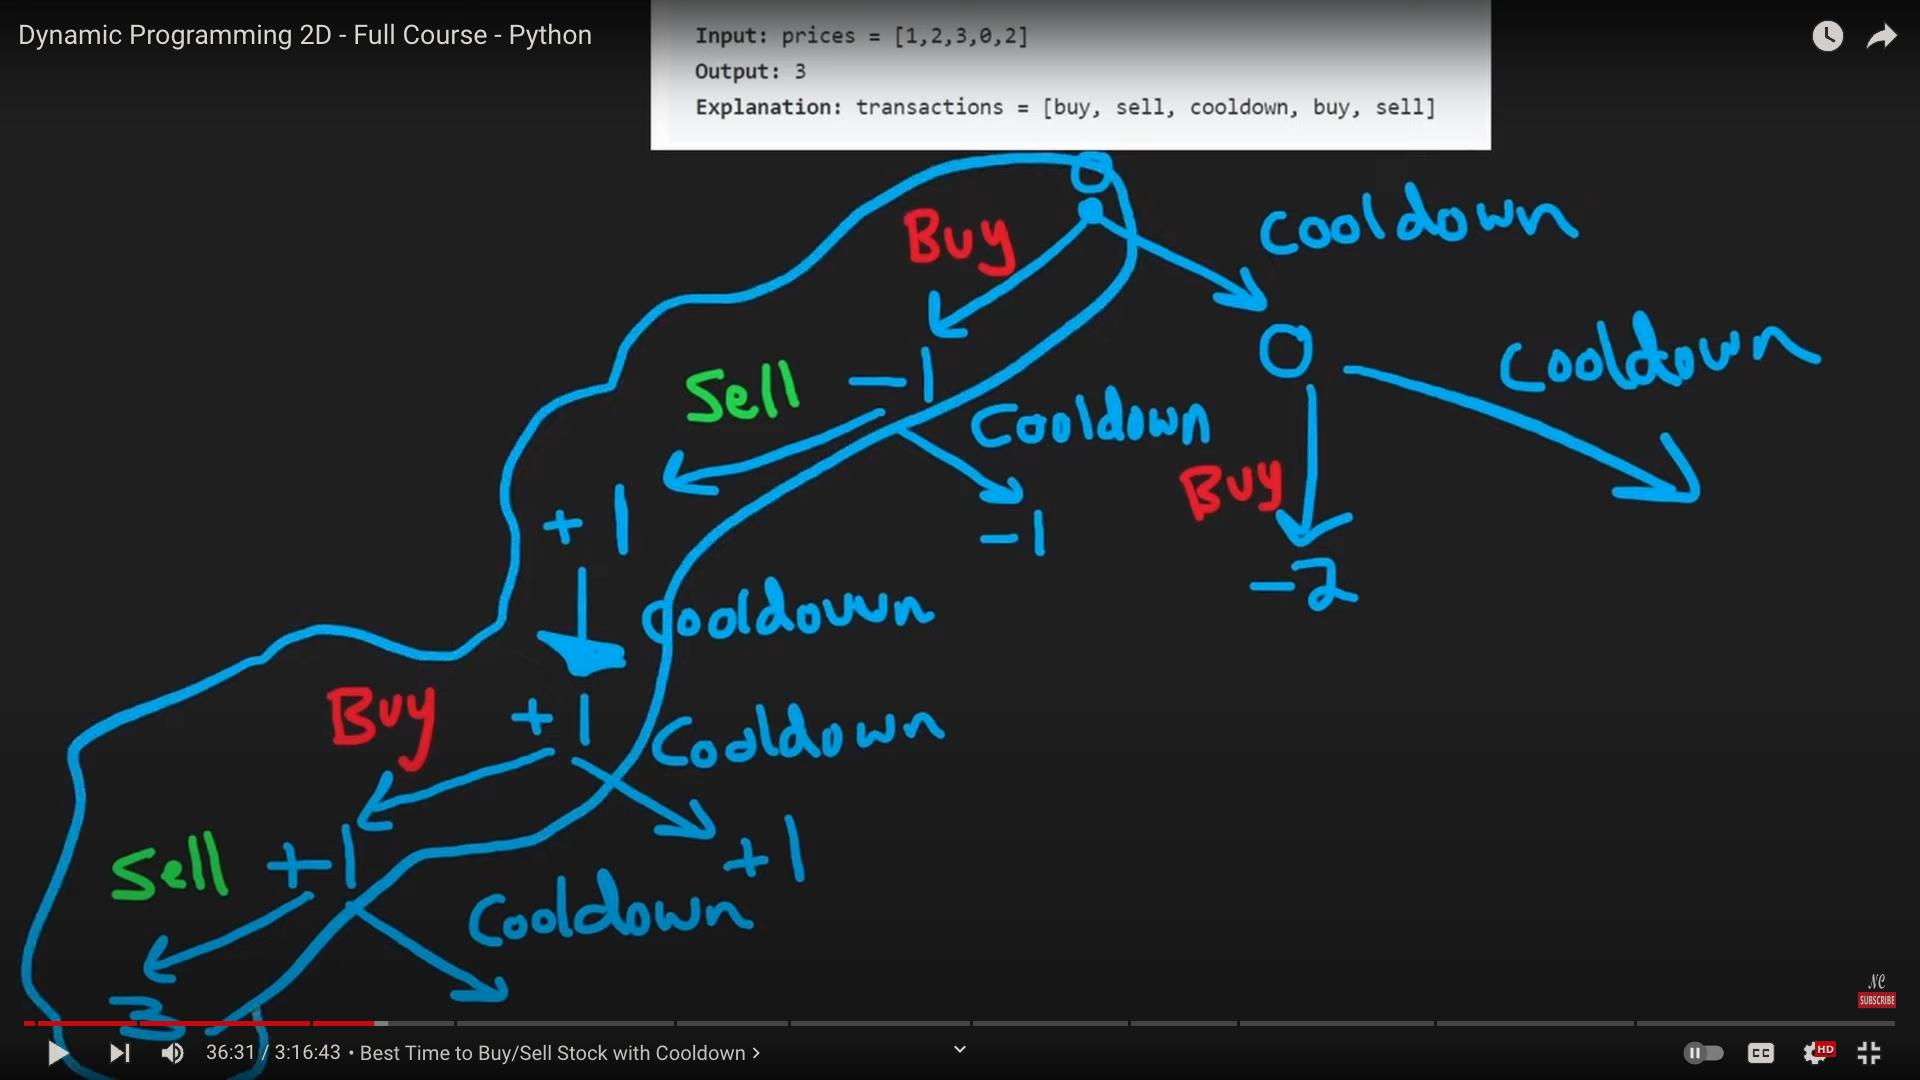 Dynamic Programming 2D - Full Course - Python
Input: prices = [1,2,3,0,2]
Output: 3
Explanation: transactions = [buy, sell, cooldown, buy, sell]
0
Buy
Cooldown
-1
0
Sell
Cooldown
Cooldown
+1
-1
Buy
-2
Cooldown
+1
Buy
Cooldown
+1
+1
Sell
Cooldown
3
NC
SUBSCRIBE
36:31 / 3:16:43 • Best Time to Buy/Sell Stock with Cooldown >
CC
HD